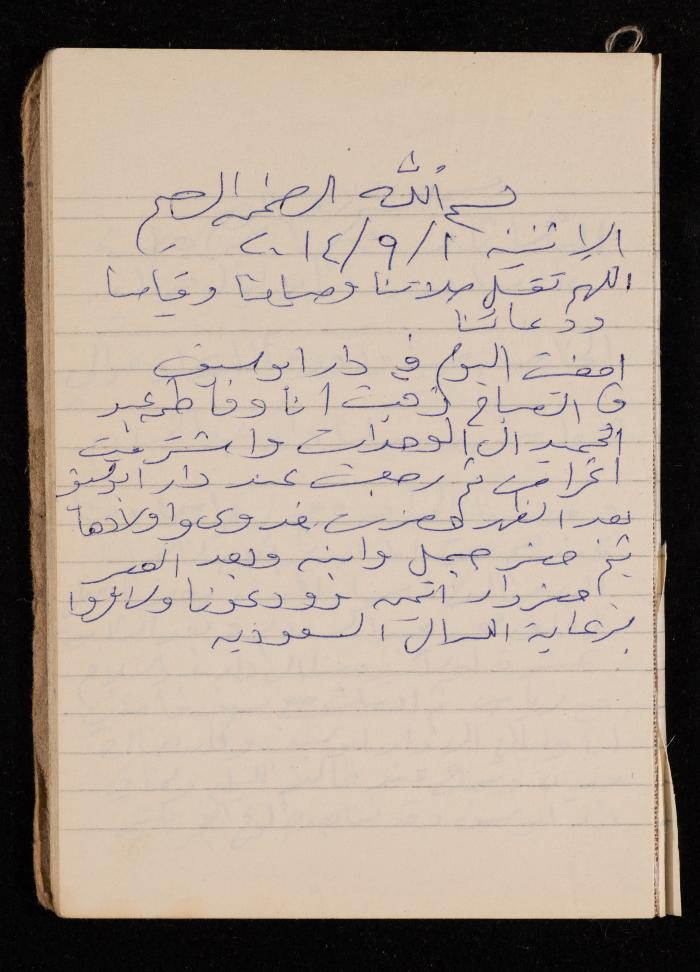 بسم الله الرحمن الرحيم
الاثنين ٢٠١٤/٩/١
اللهم تقبل صلاتنا وصيامنا وقيامنا
ودعائنا
افقت اليوم في دار ابو سيف
في الصباح ذهبت انا وفاطمه عبد
الحميد ال الوحدات واشتريت
اغراض ثم رجعت عند دار ابو سيف
بعد الظهر حضرت فدوى واولادها
ثم حضر جميل وابنه وبعد العصر
احضر دار اتميم وودعونا وسافروا
برعاية الله ال السعوديه